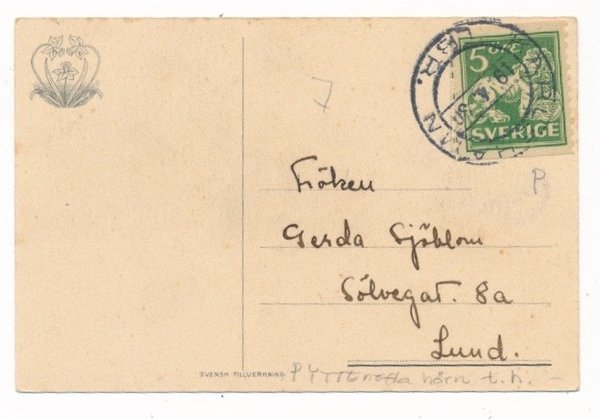 5 ÖRE
SVERIGE
LBR.
7
P
Fröken
Gerda Sjöblom
Sölvegat. 8a
Lund.
SVENSK TILLVERKNING
hörn t. h.